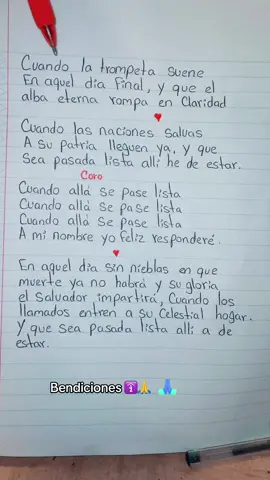 Cuando la trompeta suene
En aquel dia Final, y que el
alba eterna rompa en Claridad
Cuando las naciones salvas
A su patria lleguen ya, y que
Sea pasada lista alli he de estar.
Coro
Cuando allá se pase lista
Cuando allá se pase lista
Cuando allá se pase lista
A mi nombre yo feliz responderé.
En aquel dia sin nieblas en que
muerte ya no habrá y su gloria
el Salvador impartirá, Cuando los
llamados entren a su Celestial hogar.
Y que sea pasada lista alli a de
estar.
Bendiciones🛐🙏 🙏